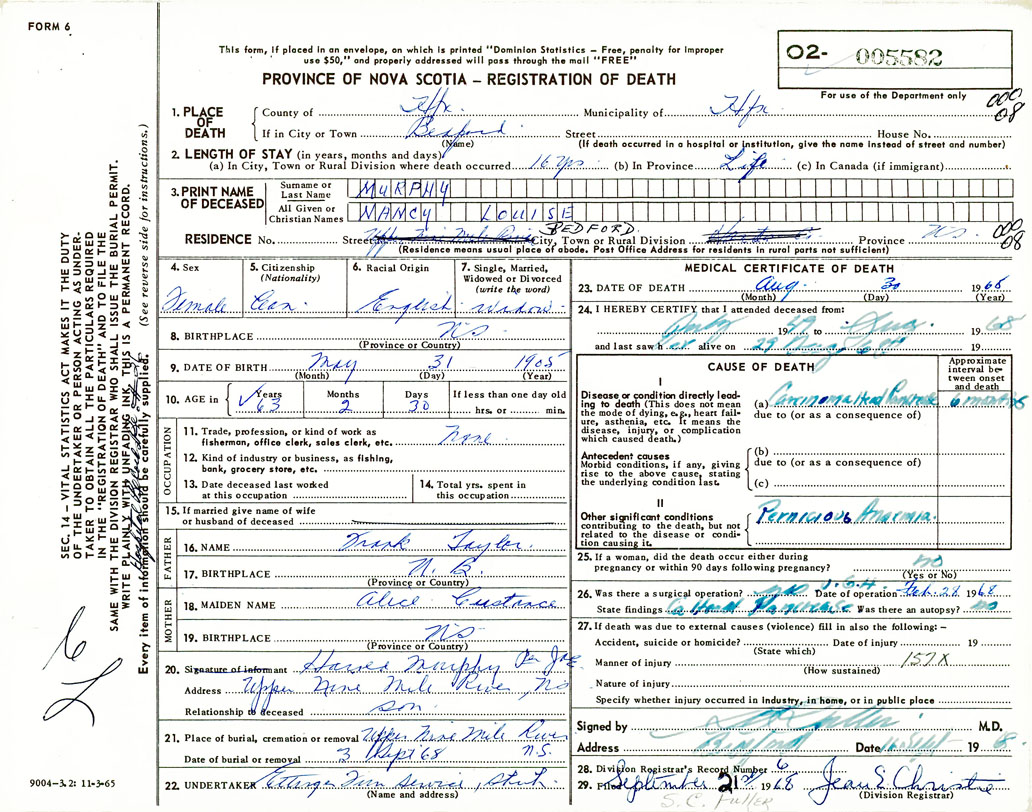 FORM 6
This form, if placed in an envelope, on which is printed "Dominion Statistics – Free, penalty for improper
use $50," and properly addressed will pass through the mail "FREE"
PROVINCE OF NOVA SCOTIA – REGISTRATION OF DEATH
02- 005582
For use of the Department only
000
08
SEC. 14 – VITAL STATISTICS ACT MAKES IT THE DUTY
OF THE UNDERTAKER OR PERSON ACTING AS UNDER-
TAKER TO OBTAIN ALL THE PARTICULARS REQUIRED
IN THE "REGISTRATION OF DEATH" AND TO FILE THE
SAME WITH THE DIVISION REGISTRAR WHO SHALL ISSUE THE BURIAL PERMIT.
WRITE PLAINLY WITH UNFADING INK, THIS IS A PERMANENT RECORD.
Every item of information should be carefully supplied. (See reverse side for instructions.)
1. PLACE OF DEATH County of Hfx Municipality of Hfx
If in City or Town Bedford Street House No.
(Name) (If death occurred in a hospital or institution, give the name instead of street and number)
2. LENGTH OF STAY (in years, months and days)
(a) In City, Town or Rural Division where death occurred 16 yrs (b) In Province Life (c) In Canada (if immigrant)
3. PRINT NAME OF DECEASED Surname or Last Name MURPHY
All Given or Christian Names NANCY LOUISE
BEDFORD
RESIDENCE No. Street Upper Nine Mile River City, Town or Rural Division Province NS
000
08
(Residence means usual place of abode. Post Office Address for residents in rural parts not sufficient)
4. Sex 5. Citizenship (Nationality) 6. Racial Origin 7. Single, Married, Widowed or Divorced (write the word)
Female Can English Widow
8. BIRTHPLACE NS
(Province or Country)
9. DATE OF BIRTH May 31 1905
(Month) (Day) (Year)
10. AGE in Years 63 Months 2 Days 30 If less than one day old hrs. or min.
OCCUPATION
11. Trade, profession, or kind of work as fisherman, office clerk, sales clerk, etc. None
12. Kind of industry or business, as fishing, bank, grocery store, etc.
13. Date deceased last worked at this occupation 14. Total yrs. spent in this occupation
15. If married give name of wife or husband of deceased
FATHER
16. NAME Frank Taylor
17. BIRTHPLACE N.B.
(Province or Country)
MOTHER
18. MAIDEN NAME Alice Custance
19. BIRTHPLACE NS
(Province or Country)
20. Signature of informant Murphy Per
Address Upper Nine Mile River, NS
Relationship to deceased son
21. Place of burial, cremation or removal Upper Nine Mile River N.S.
Date of burial or removal 3 Sept 68
22. UNDERTAKER Ettinger Fun Service,
(Name and address)
9004–3.2: 11-3-65
MEDICAL CERTIFICATE OF DEATH
23. DATE OF DEATH Aug. 30 1968
(Month) (Day) (Year)
24. I HEREBY CERTIFY that I attended deceased from:
July 19 to Aug. 1968
and last saw her alive on 29 Aug 68 19
CAUSE OF DEATH
Approximate interval between onset and death
I
Disease or condition directly leading to death (This does not mean the mode of dying, e.g., heart failure, asthenia, etc. It means the disease, injury, or complication which caused death.)
(a) Carcinoma Head Pancreas 6 months
due to (or as a consequence of)
Antecedent causes
Morbid conditions, if any, giving rise to the above cause, stating the underlying condition last.
(b)
due to (or as a consequence of)
(c)
II
Other significant conditions contributing to the death, but not related to the disease or condition causing it.
Pernicious Anaemia.
25. If a woman, did the death occur either during pregnancy or within 90 days following pregnancy? no
(Yes or No)
26. Was there a surgical operation? V.G.H. Date of operation Feb. 28 1968
State findings Ca Head Pancreas Was there an autopsy? no
27. If death was due to external causes (violence) fill in also the following: –
Accident, suicide or homicide? Date of injury 19
(State which)
Manner of injury 157X
(How sustained)
Nature of injury
Specify whether injury occurred in industry, in home, or in public place
Signed by M.D.
Address Bedford Date 16 Sept 1968
28. Division Registrar's Record Number 6
29. Filed September 21st 1968 Jean E Christie
(Division Registrar)
S.C. Fuller